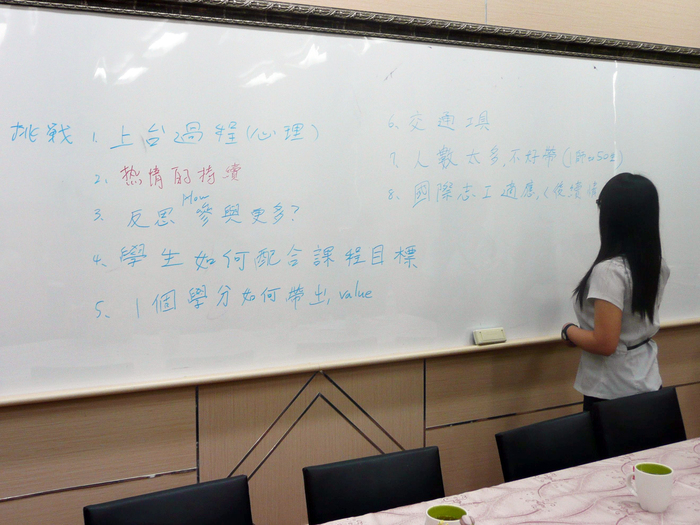 挑戰 1. 上台過程(心理)
2. 熱情的持續
How
3. 反思 參與更多?
4. 學生如何配合課程目標
5. 1個學分如何帶出 value
6. 交通工具
7. 人數太多,不好帶(1師
8. 國際志工適應,(後續